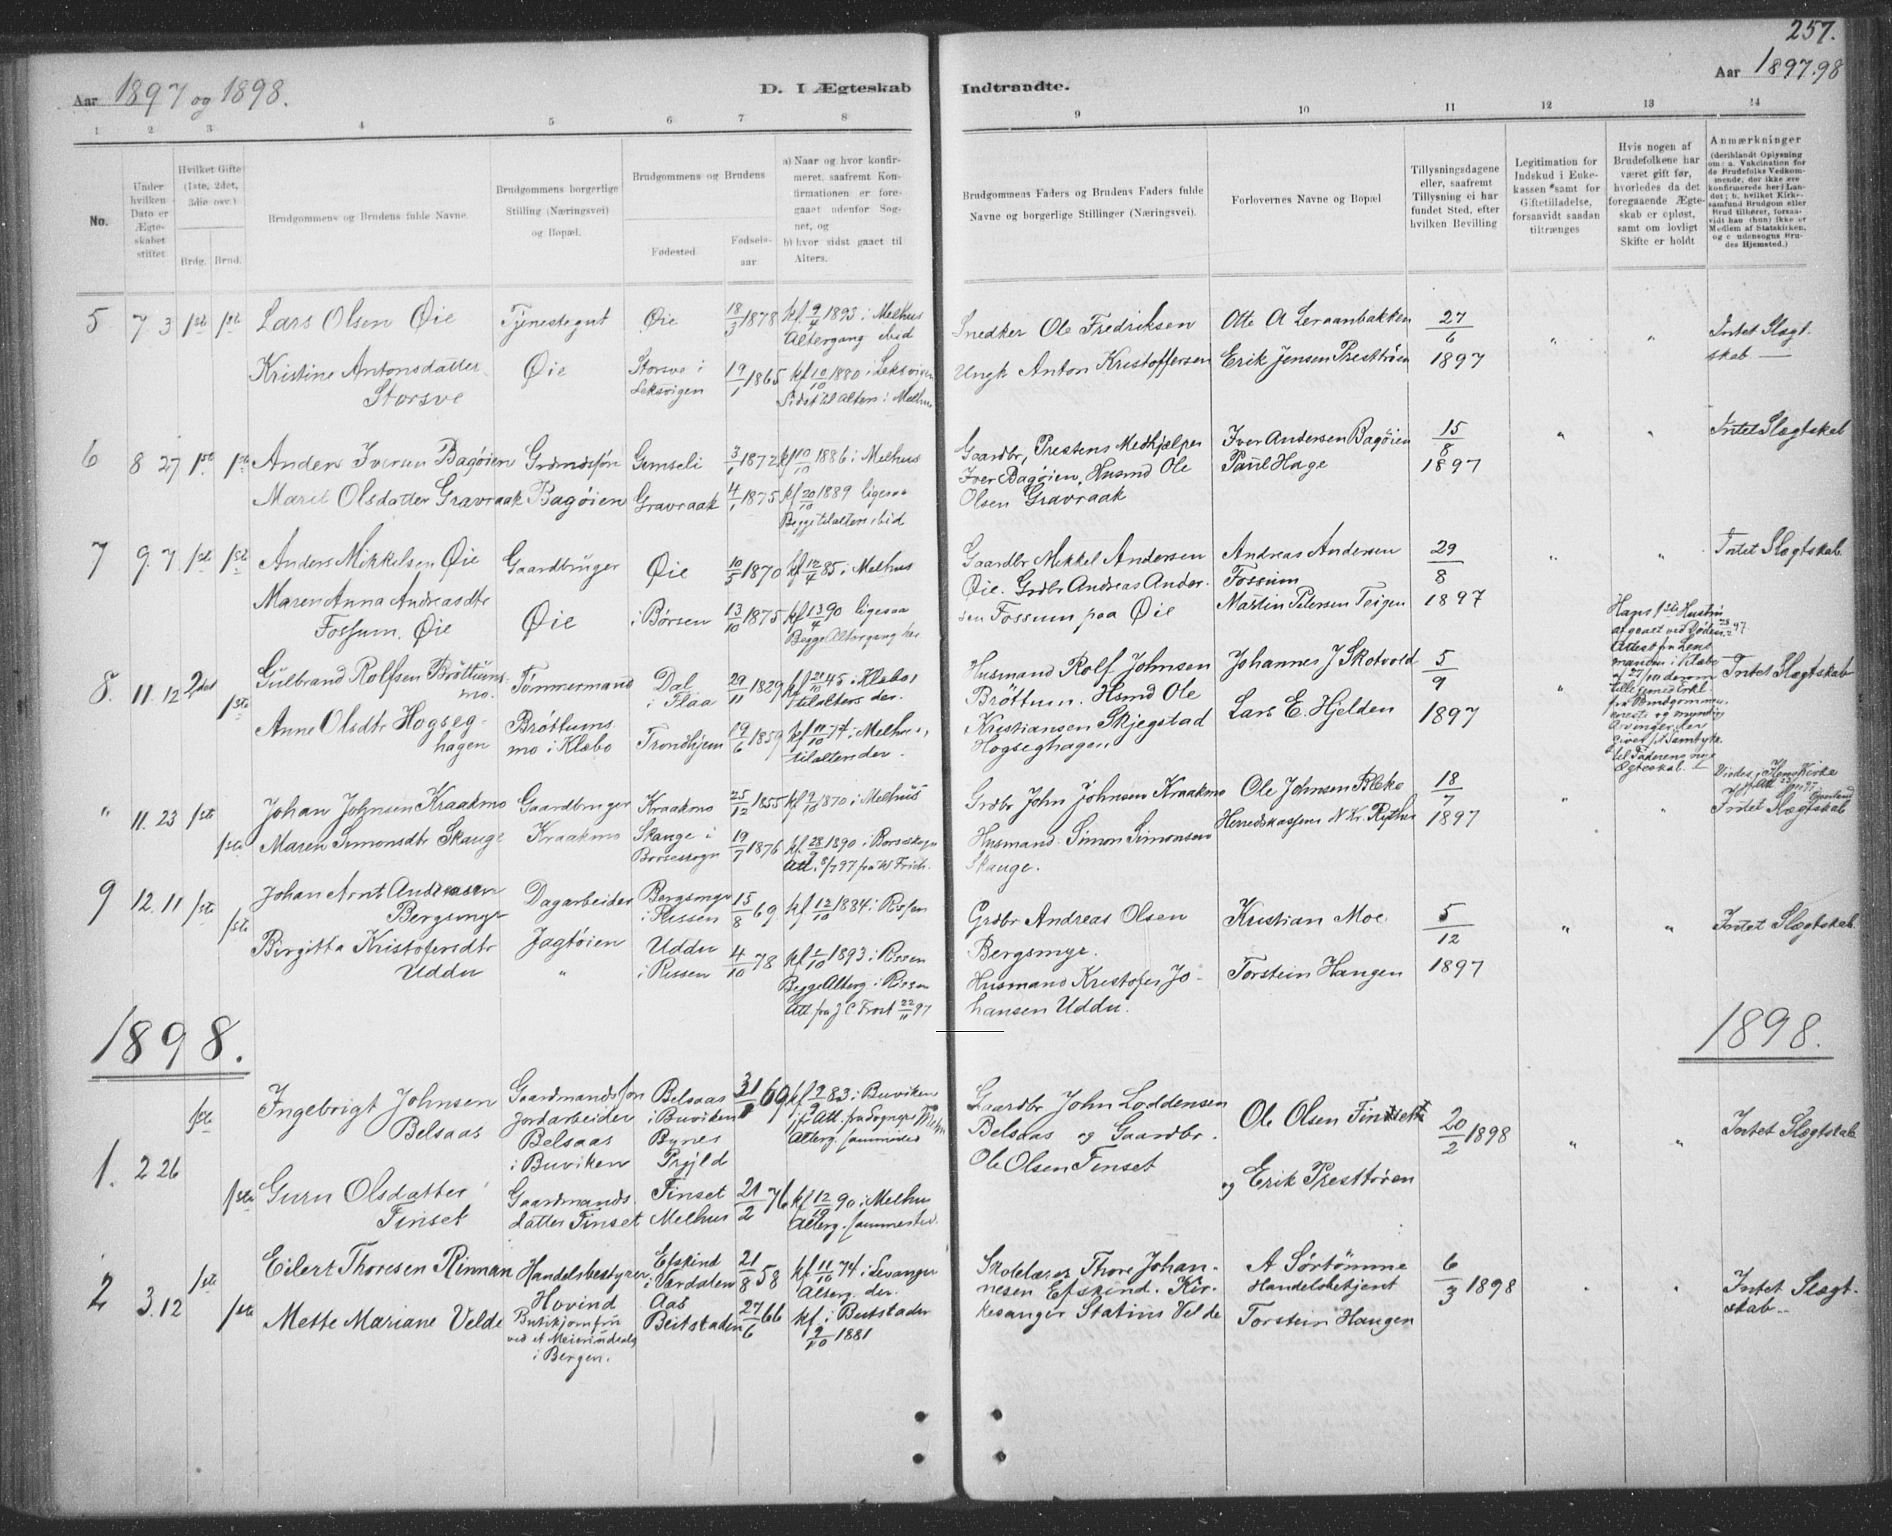 257.
Aar 1897 og 1898.
D. I Ægteskab Indtraadte.
Aar 1897.98
1 2 3 4 5 6 7 8 9 10 11 12 13 14
No.
Under hvilken Dato er Ægteskabet stiftet
Hvilket Gifte (1ste, 2det, 3die osv.)
Brdg. Brud.
Brudgommens og Brudens fulde Navne.
Brudgommens borgerlige Stilling (Næringsvei) og Bopæl.
Brudgommens og Brudens
Fødested. Fødselsaar
a) Naar og hvor konfirmeret, saafremt Konfirmationen er foregaaet udenfor Sognet, og
b) hvor sidst gaaet til Alters.
Brudgommens Faders og Brudens Faders fulde Navne og borgerlige Stillinger (Næringsvei).
Forlovernes Navne og Bopæl
Tillysningsdagene eller, saafremt Tillysning ei har fundet Sted, efter hvilken Bevilling
Legitimation for Indskud i Enkekassen samt for Giftetilladelse, forsaavidt saadan tiltrænges
Hvis nogen af Brudefolkene har været gift før, hvorledes da det foregaaende Ægteskab er opløst, samt om lovligt Skifte er holdt
Anmærkninger
(deriblandt Oplysning om: a. Vakcination for de Brudefolks Vedkommende, der ikke ere konfirmerede her i Landet; b. hvilket Kirkesamfund Brudgom eller Brud tilhører, forsaavidt han (hun) ikke er Medlem af Statskirken, og c udensogns Brudes Hjemsted.)
5 7 3 1ste 1ste Lars Olsen Øie Tjenestegut Øie 18/3 1878 kf 9/4 1893 i Melhus
Altergang ibid
Kristine Antonsdatter Øie Storsve i 19/1 1865 kf 10/10 1880 i Leksvigen
Storsve Leksvigen Sidst til alters i Melhus
Snedker Ole Fredriksen Otte A Leraanbakken 27/6 " " Intet Slægt-
Ungk Anton Kristoffersen Erik Jensen Presttrøen 1897 skab
6 8 27 1ste 1ste Anders Iversen Bagøien Grdmdssøn Gimseli 3/1 1872 kf 10/10 1886 i Melhus
Marit Olsdatter Gravraak Bagøien Gravraak 4/1 1875 kf 20/10 1889 ligesaa
Begge til alters ibid
Gaardbr, Prestens Medhjælper Iver Andersen Bagøien 15/8 " " Intet Slægtskab
Iver Bagøien, Husmd Ole Paul Hage 1897
Olsen Gravraak
7 9. 7. 1ste 1ste Anders Mikkelsen Øie Gaardbruger Øie 10/5 1870 kf 12/4 85 i Melhus
Maren Anna Andreasdtr Øie i Børsen 13/10 1875 kf 13/4 90 ligesaa
Fossum. Øie Begge Altergang her
Gaardbr Mikkel Andersen Andreas Andersen 29/8 " " Intet Slægtskab
Øie. Grdbr Andreas Ander- Fossum
sen Fossum paa Øie Martin Petersen Teigen 1897
8. 11 12 2det 1ste Gulbrand Rolfsen Brøttums- Tømmermand Dal 29/11 1829 kf 21/10 45 i Klæbo,
mo. i Flaa til alters der.
Anne Olsdtr Hogseg- Brøttums Trondhjem 19/6 1859 kf 11/10 74 i Melhus,
hagen mo i Klæbo til alters der.
Husmand Rolf Johnsen Johannes J Skotvold 5/9 " Intet Slægtskab
Brøttum. Hsmd Ole Lars E. Hjelden 1897
Kristiansen Skjegstad
Hogseghagen
Hans 1ste Hustru
afgaaet ved Døden
Attest fra Lens
manden i Klæbo
til Faderens nye
Ægteskab.
" 11. 23 1ste 1ste Johan Johnsen Kraakmo Gaardbruger Kraakmo 25/12 1855 kf 9/10 1870 i Melhus
Maren Simonsdtr Skauge Kraakmo Skauge i Børsesogn 19/7 1876 kf 28/9 1890 i Børsesogn
Grdbr John Johnsen Kraakmo Ole Johnsen Bleke 18/7 " "
Husmand Simon Simonsen Herredskasserer N Kr. 1897 Intet Slægtskab
Skauge.
9 12. 11 1ste 1ste Johan Arnt Andreasen Dagarbeider Bergsmye 15/8 69 kf 12/10 1884 i Rissen
Bergsmye i Rissen
Birgitta Kristofersdtr Jagtøien Uddu 4/10 78 kf 1/10 1893 i Rissen
Uddu " i Rissen Begge Alterg. i Rissen
Att. fra J. C. Frost 22/11 97
Grdbr Andreas Olsen Kristian Moe 5/12 " " Intet Slægtskab.
Bergsmye. Torstein Haugen 1897
Husmand Kristofer Jo-
hansen Uddu.
1898. 1898.
1. 2 26 1ste Ingebrigt Johnsen Gaardmandssøn Belsaas kf 83 i Buviken
Belsaas Jordarbeider i Buviken
Belsaas Bynes Alterg. sammesteds
i Buviken Prgjld
1ste Guru Olsdatter Gaardmands Finset 21/2 76 kf 12/10 90 i Melhus
Finset datter Finset Melhus Alterg. sammested.
Gaardbr John Loddensen Ole Olsen Finset 20/2 1898 " " Intet Slægtskab
Belsaas og Gaardbr. og Erik Presttrøen
Ole Olsen Finset
2 3. 12 1ste Eilert Thoresen Rinnan Handelsbestyrer Efskind 21/8 58 kf 11/10 74 i Levanger
Hovind i Værdalen Alterg. der.
1ste Mette Mariane Velde Butikjomfru Aas 27/6 66 kf. i Beitstaden
ved et Meieriudsalg Beitstaden 9/10 1881
i Bergen.
Skolelærer Thore Johan- A Sørtømme 6/3 1898 " " Intet Slægt-
nesen Efskind. Kir- Handelsbetjent skab.
kesanger Statius Velde Torstein Haugen